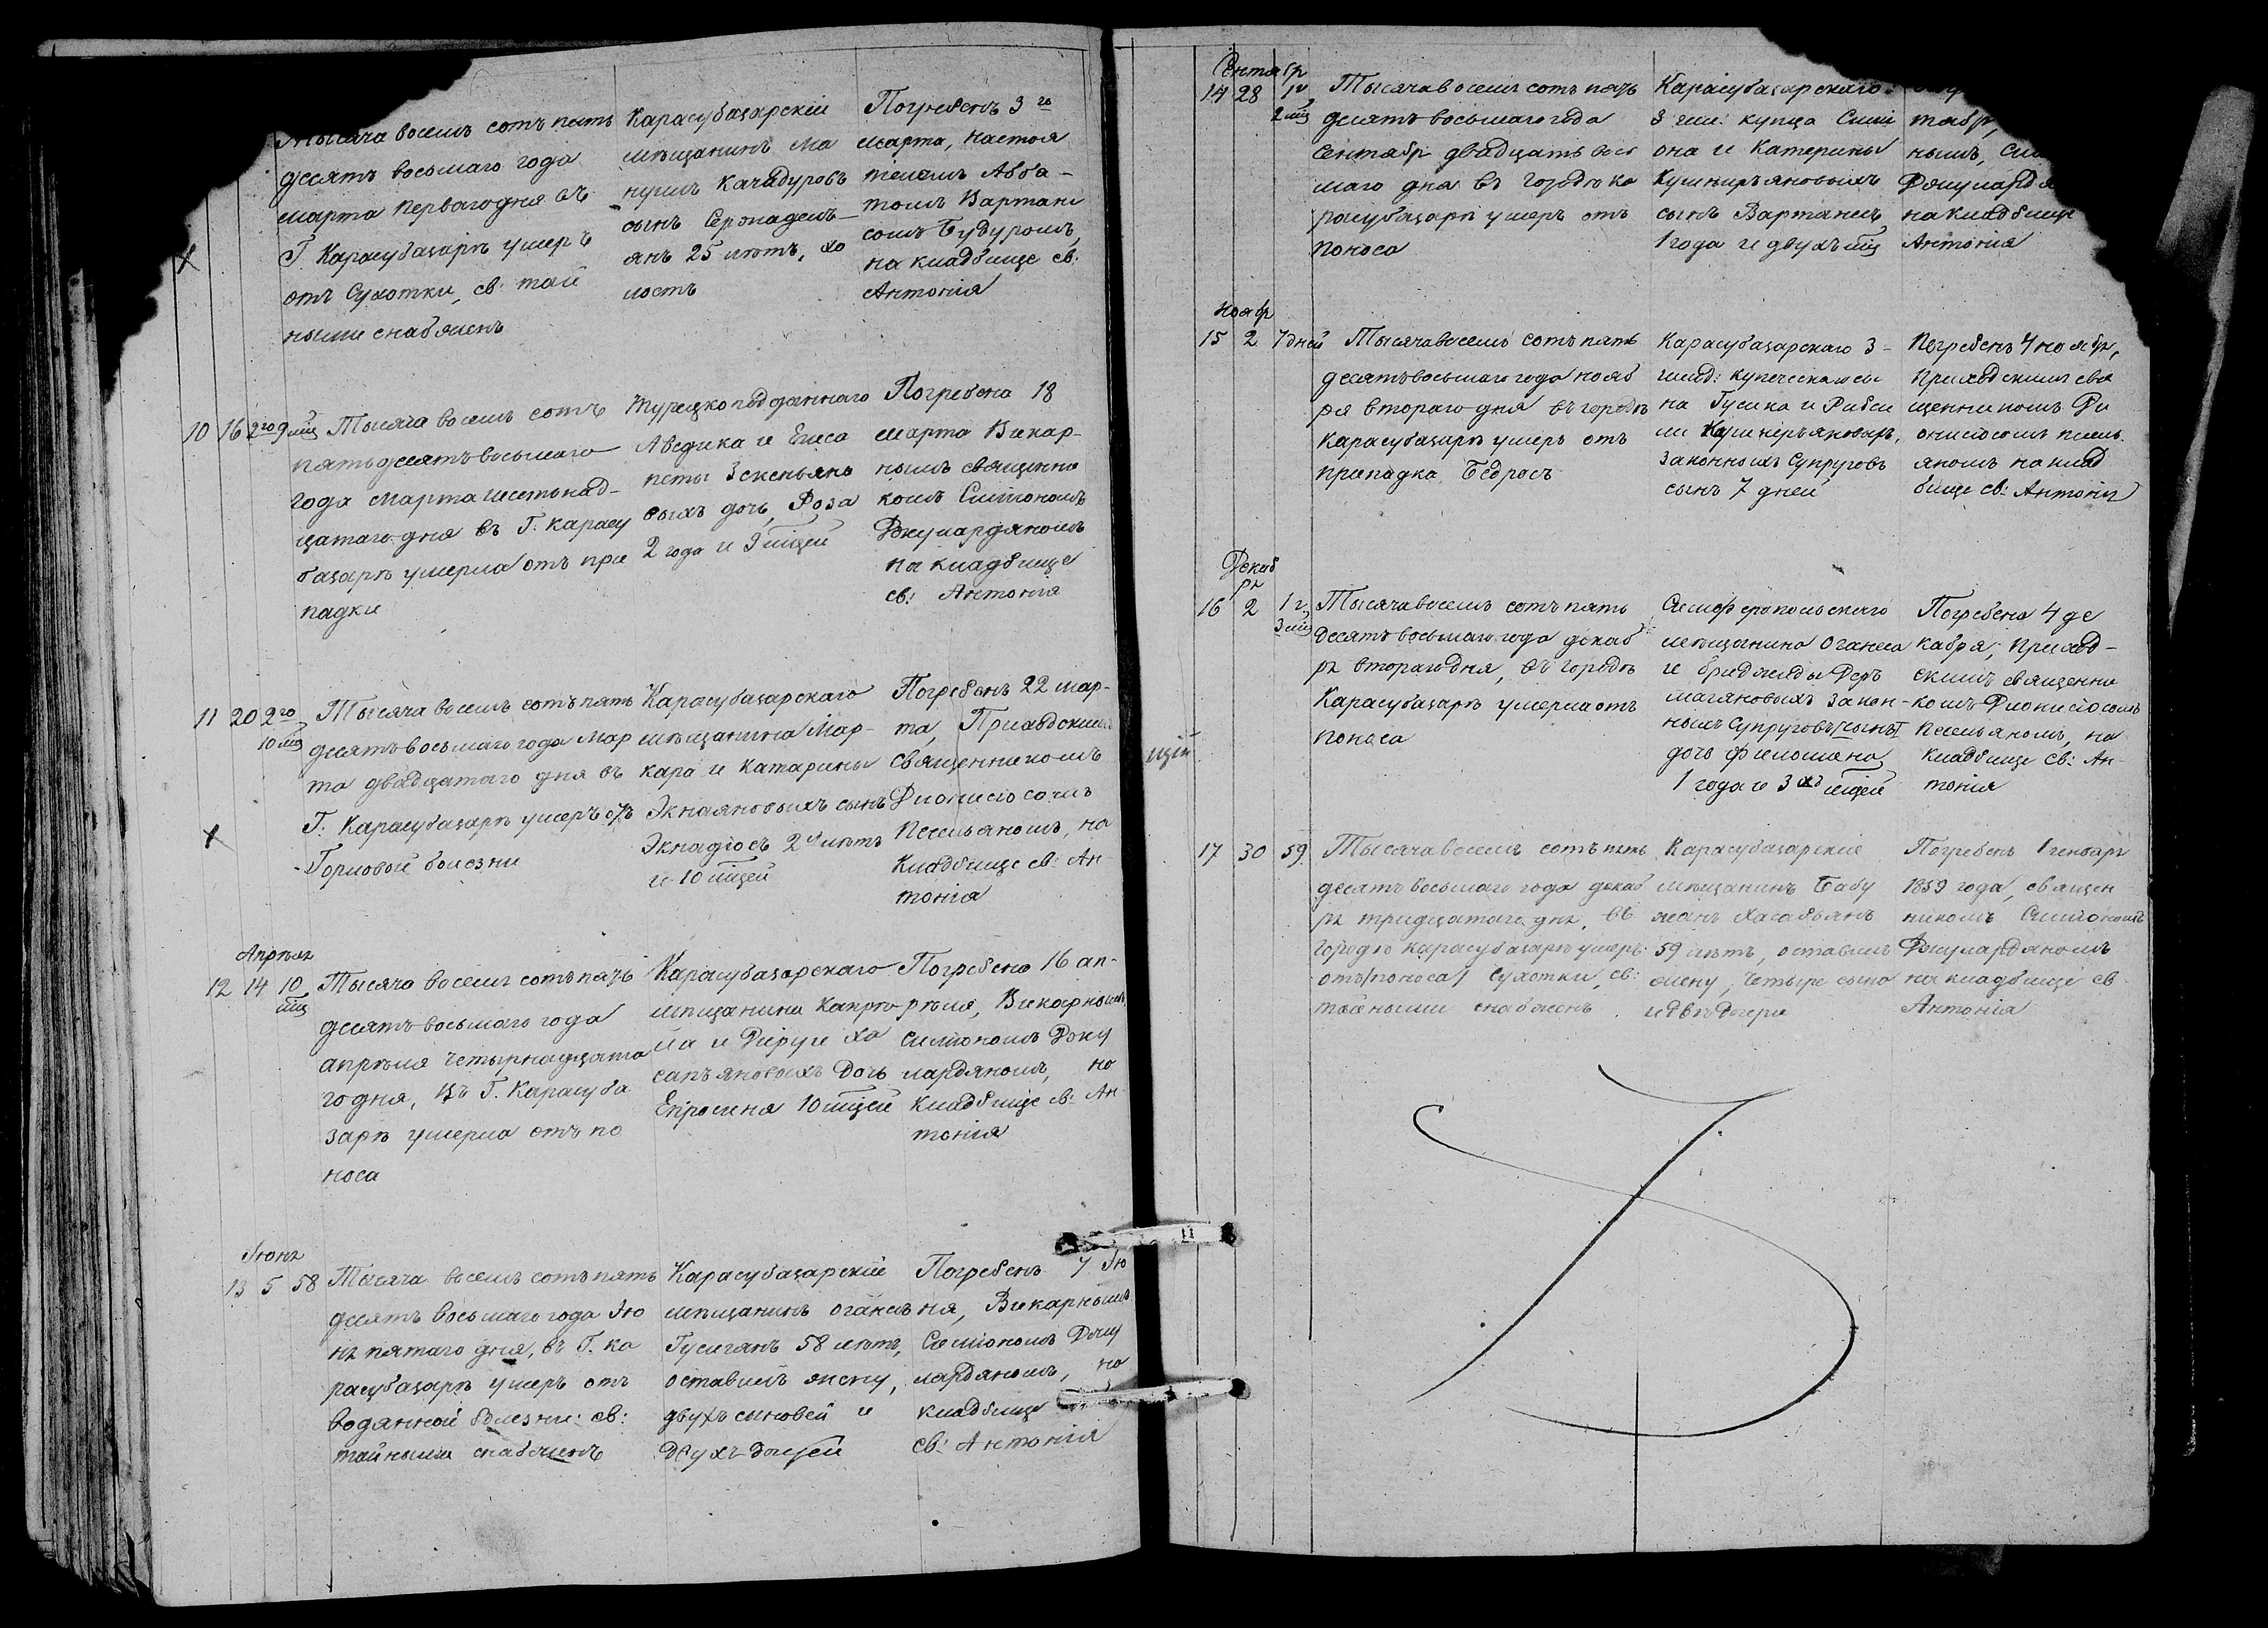 Тысяча восемь сотъ пять
десять восьмаго года
марта перваго дня въ
Г. Карасубазаръ умеръ
отъ Сухотки, св. тай
ными снабженъ
Карасубазарскій
мѣщанинъ Ма
нушъ Качадуровъ
сынъ
анъ 25 лѣтъ, хо
лостъ
Погребенъ 3го
марта, настоя
телемъ Абба-
томъ Вартане
сомъ Будуромъ,
на кладбище св:
Антонія
10 16 2го 9 мц
Тысяча восемь сотъ
пятьдесятъ восьмаго
года марта шестьнад-
цатаго дня въ Г. Карасу
базарѣ умерла отъ при
падки
Турецко подданнаго
Аведика и Егиса
петы Зекеньяно
выхъ дочь, Роза
2 года и 9 мцей
Погребена 18
марта Викар-
нымъ священни
комъ Симономъ
Джулардяномъ
на кладбище
св: Антонія
11 20 2го
10 мц
Тысяча восемь сотъ пять
десятъ восьмаго года мар
та двадцатаго дня въ
Г: Карасубазарѣ умеръ отъ
Горловой болезни
Карасубазарскаго
мѣщанина Мар-
кара и Катарины
Экнаяновыхъ сынъ
Экнадіосъ 2хъ лѣтъ
и 10 мцей
Погребенъ 22 мар-
та, Приходскимъ
священникомъ
Дионисіосомъ
на
Кладбище св: Ан-
тонія
Апрѣля
12 14 10
мц
Тысяча восемь сотъ пять
десятъ восьмаго года
апрѣля четырнадцата
го дня, въ Г. Карасуба
зарѣ умерла отъ по
носа
Карасубазарскаго
мѣщанина Капріэ
ла и Діруги Ха
сапъяновыхъ дочь
Епросина 10 мцей
Погребена 16 ап-
рѣля, Викарнымъ
Симономъ Джу
лардяномъ, на
Кладбище св: Ан
тонія
Іюня
13 5 58
Тысяча восемь сотъ пять
десятъ восьмаго года Ію
ня пятаго дня, въ Г. Ка
расубазарѣ умеръ отъ
водянной болезни: св:
тайными снабженъ
Карасубазарскіе
мѣщанинъ Оганесъ
Гусигянъ 58 лѣтъ,
оставилъ жену,
двухъ сыновей и
двухъ дочерей
Погребенъ 7 Ію
ня, Викарнымъ
Симіономъ Джу
лардяномъ, на
кладбище
св: Антонія
Сентябр
14 28 1г
2 мц
Тысяча восемь сотъ пять
десятъ восьмаго года
Сентябр двадцать вось
маго дня въ Городѣ Ка
расубазарѣ умеръ отъ
поноса
Карасубазарскаго
3 гил: купца Сими
она и Катерины
Кушниръяновыхъ
сынъ Вартанъ
1 года и двухъ мц
тябр,
нымъ, Сим
Джулардя
на кладбище
Антонія
Ноябр
15 2 7 дней
Тысяча восемь сотъ пять
десятъ восьмаго года нояб
ря втораго дня въ городѣ
Карасубазарѣ умеръ отъ
припадка Бедросъ
Карасубазарскаго 3-
гильд: купеческаго сы
на Гусика и Рибси
ми Кушнеръяновыхъ,
законныхъ Супруговъ
сынъ 7 дней
Погребенъ 4 ноябр,
Приходскимъ свя
щенникомъ Ди
онисіосомъ
яномъ на клад
бище св: Антонія
Декаб
ря
16 2 1 г.
3 мц
Тысяча восемь сотъ пять
десятъ восьмаго года декаб
ря втораго дня, въ городѣ
Карасубазарѣ умерла отъ
поноса
Симферопольскаго
мѣщанина Оганеса
и Бриджиды Деръ
магяновыхъ закон-
ныхъ супруговъ /сынъ/
дочь Филомена
1 года и 3хъ мцей
Погребена 4 де
кабря; Приход-
скимъ священни
комъ Дионисіосомъ
на
Кладбище св: Ан-
тонія
щій
17 30 59
Тысяча восемь сотъ пять
десятъ восьмаго года декаб
ря тридцатаго дня, въ
городѣ Карасубазарѣ умеръ
отъ /поноса/ Сухотки, св:
тайными снабженъ
Карасубазарскіе
мѣщанинъ Бабу
жанъ Хасабьянъ
59 лѣтъ, оставилъ
жену, четыре сына
и двѣ дочери
Погребенъ 1 генваря
1859 года, священ
никомъ Симіономъ
Джулардяномъ
на кладбище св
Антонія